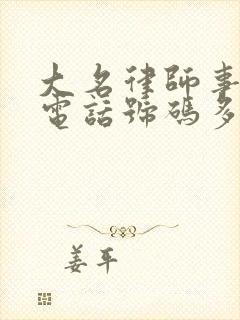 大名律師事
電話號碼多
姜平